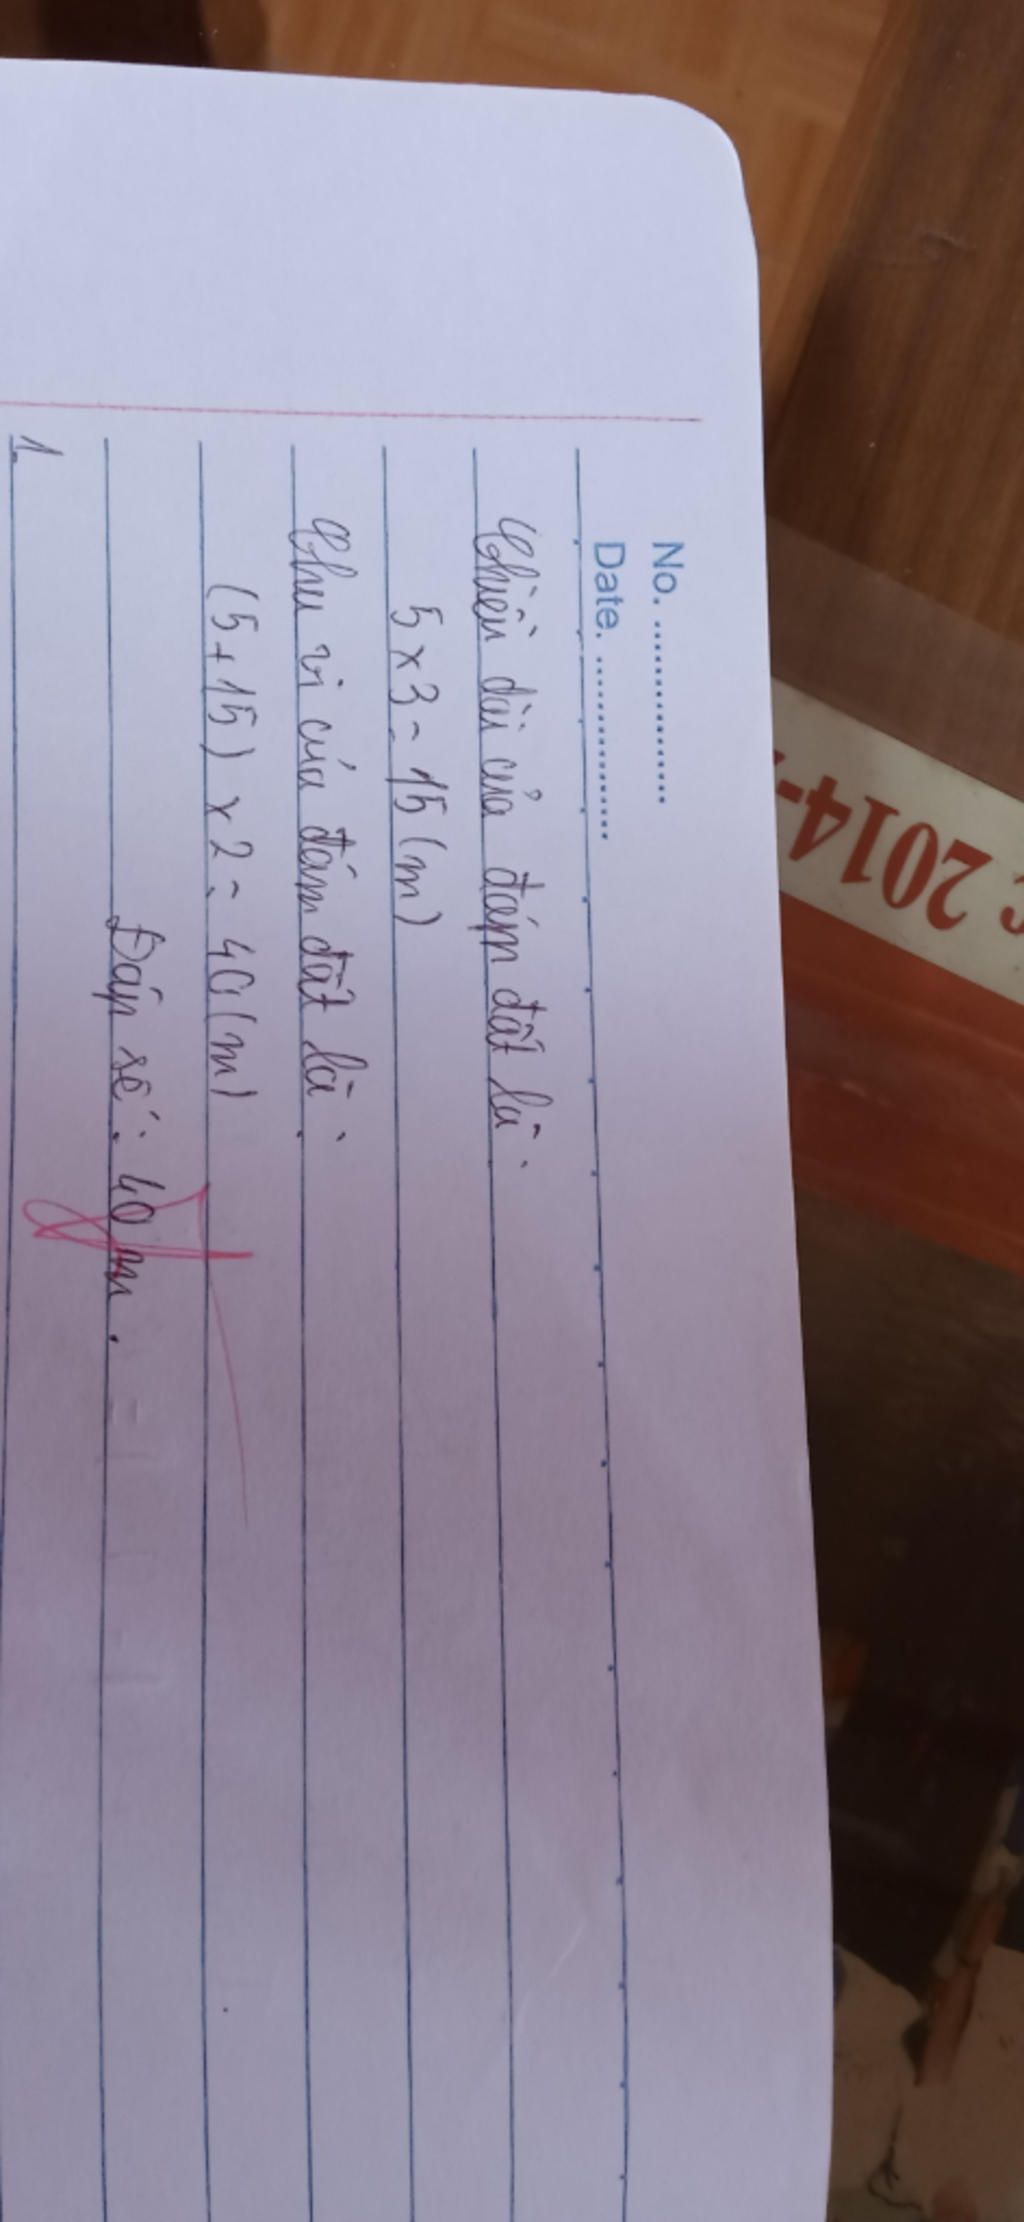 No. ................
Date. ................
Chiều dài của đám đất là:
5 x 3 = 15 (m)
Chu vi của đám đất là:
(5 + 15) x 2 = 40 (m)
Đáp số: 40 m.
1
2014-